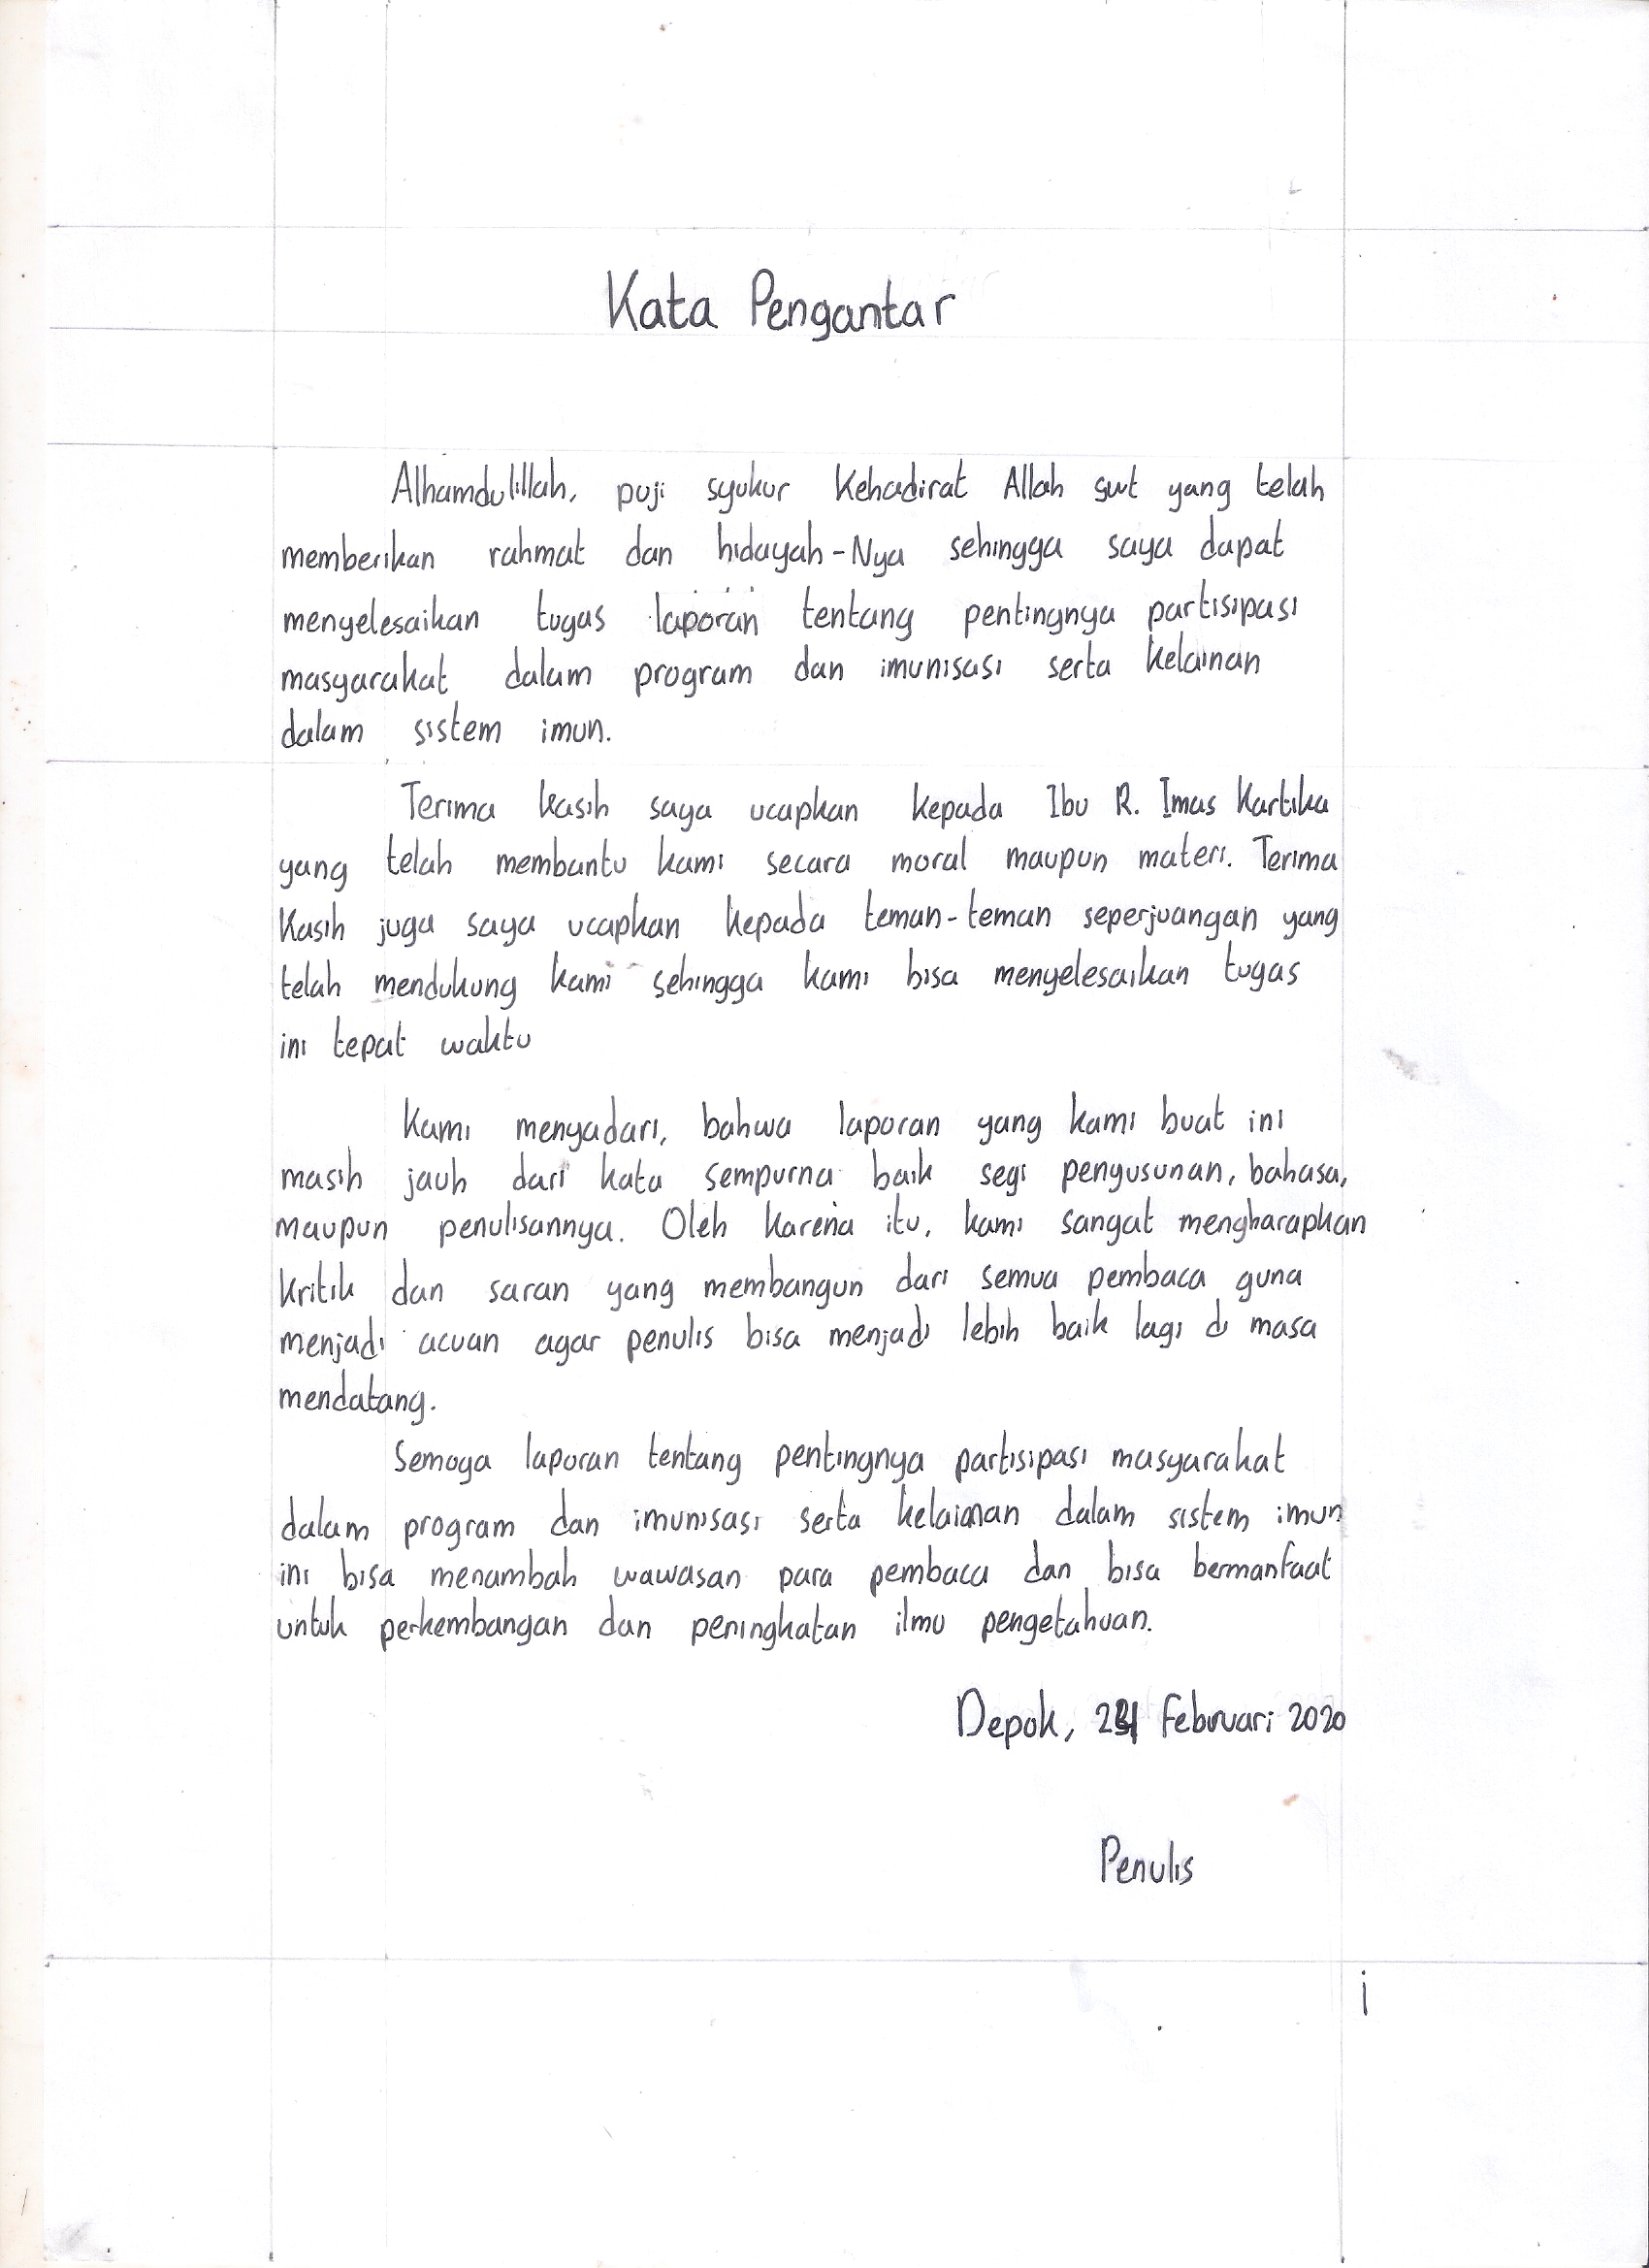 Kata Pengantar
Alhamdulillah, puji syukur Kehadirat Allah swt yang telah
memberikan rahmat dan hidayah-Nya sehingga saya dapat
menyelesaikan tugas laporan tentang pentingnya partisipasi
masyarakat dalam program dan imunisasi serta kelainan
dalam sistem imun.
Terima kasih saya ucapkan kepada Ibu R. Imas Kartika
yang telah membantu kami secara moral maupun materi. Terima
Kasih juga saya ucapkan kepada teman-teman seperjuangan yang
telah mendukung kami sehingga kami bisa menyelesaikan tugas
ini tepat waktu
Kami menyadari, bahwa laporan yang kami buat ini
masih jauh dari kata sempurna baik segi penyusunan, bahasa,
maupun penulisannya. Oleh karena itu, kami sangat mengharapkan
kritik dan saran yang membangun dari semua pembaca guna
menjadi acuan agar penulis bisa menjadi lebih baik lagi di masa
mendatang.
Semoga laporan tentang pentingnya partisipasi masyarakat
dalam program dan imunisasi serta kelainan dalam sistem imun
ini bisa menambah wawasan para pembaca dan bisa bermanfaat
untuk perkembangan dan peningkatan ilmu pengetahuan.
Depok, Februari 2020
Penulis
i